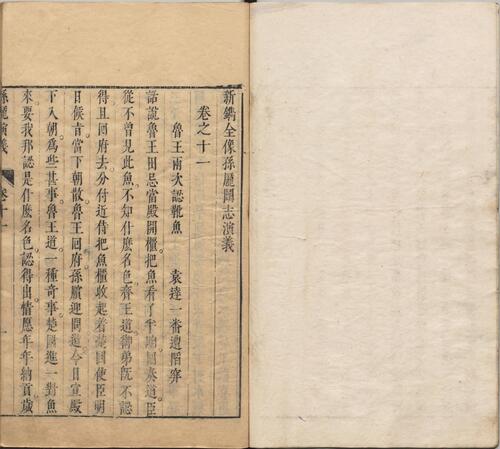 新鐫全像孫龐鬪志演義
卷之十一
魯王兩次認靴魚 袁達一番遭陷穽
話說魯王田忌當殿開櫃把魚看了半晌回奏道臣
從不曾見此魚不知什麽名色齊王道御弟既不認
得且回府去分付近侍把魚櫃收起着楚國使臣明
日候旨當下朝散魯王回府孫臏迎問道今日宣殿
下入朝爲些甚事魯王道一種奇事楚國進一對魚
來要我那認是什麽名色認得出情愿年年納貢歲
孫龐演義 卷十一 一